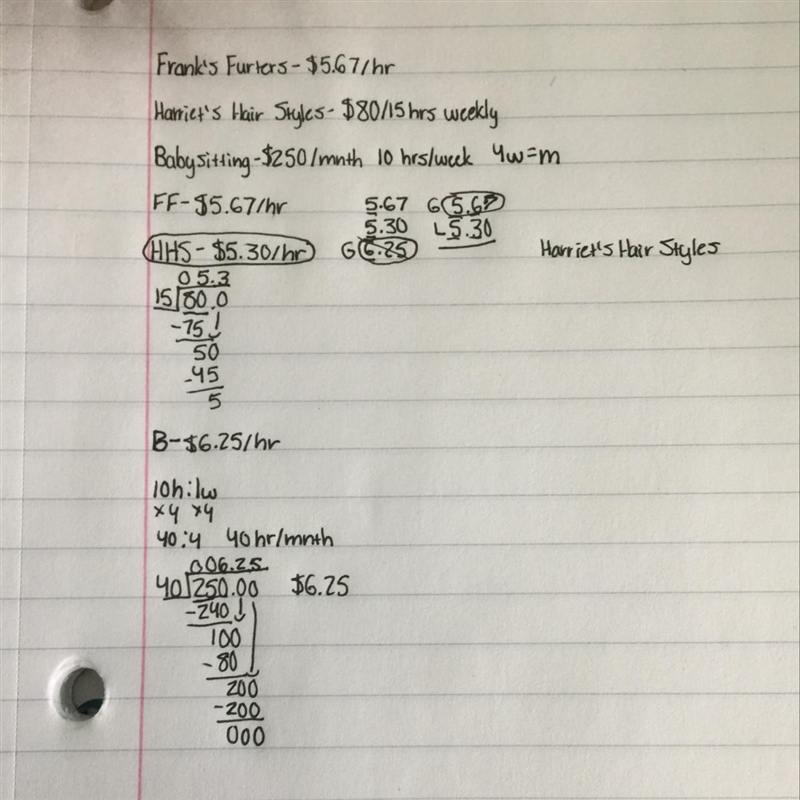 Frank's Furters - $5.67/hr
Harriet's Hair Styles - $80/15 hrs weekly
Babysitting - $250/mnth 10 hrs/week 4w=m
FF - $5.67/hr 5.67 G 5.67
5.30 L 5.30
HHS - $5.30/hr G 6.25 Harriet's Hair Styles
05.3
15 80.0
-75
50
-45
5
B - $6.25/hr
10h:1w
×4 ×4
40:4 40hr/mnth
006.25
40 250.00 $6.25
-240
100
-80
200
-200
000